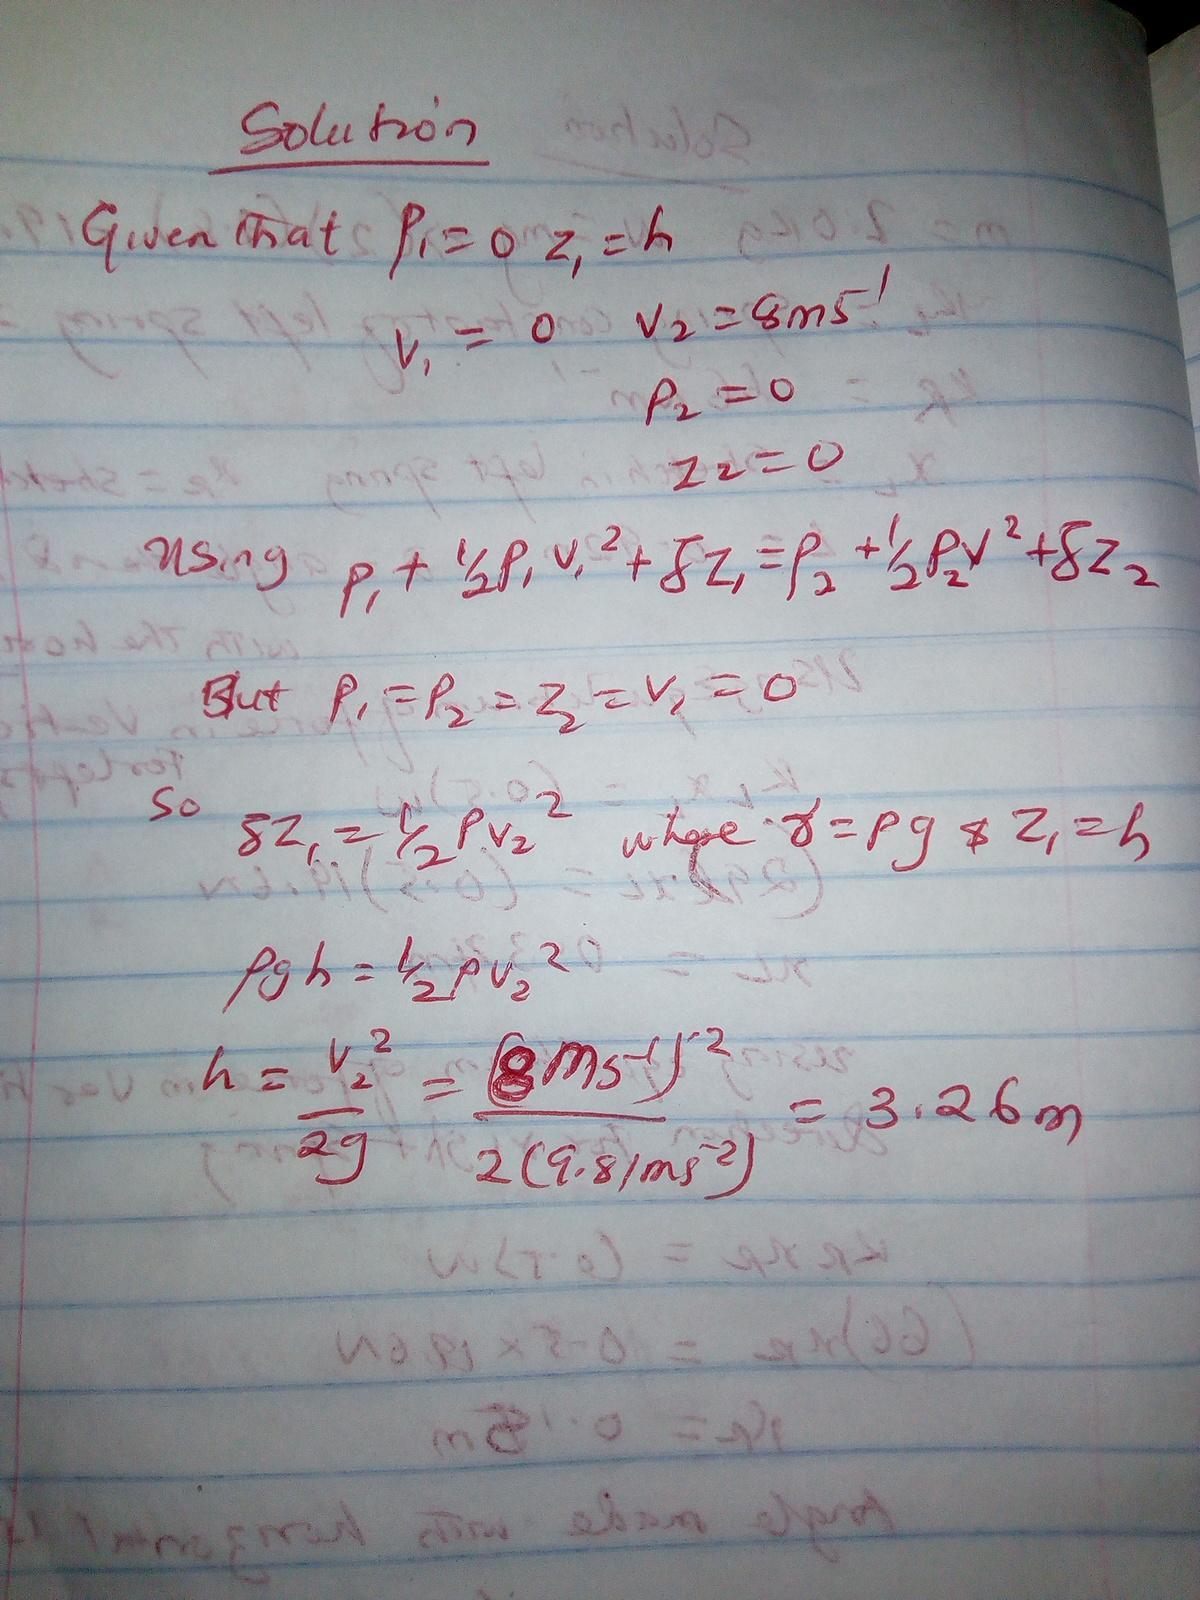 Solution
Given that P₁ = 0 Z₁ = h
V₁ = 0 V₂ = 8ms⁻¹
P₂ = 0
Z₂ = 0
Using P₁ + ½ρ₁V₁² + γZ₁ = P₂ + ½ρ₂V² + γZ₂
But P₁ = P₂ = Z₂ = V₁ = 0
So γZ₁ = ½ρV₂² where γ = ρg & Z₁ = h
ρgh = ½ρV₂²
h = V₂²/2g = (8ms⁻¹)⁻²/2(9.81ms⁻²) = 3.26m